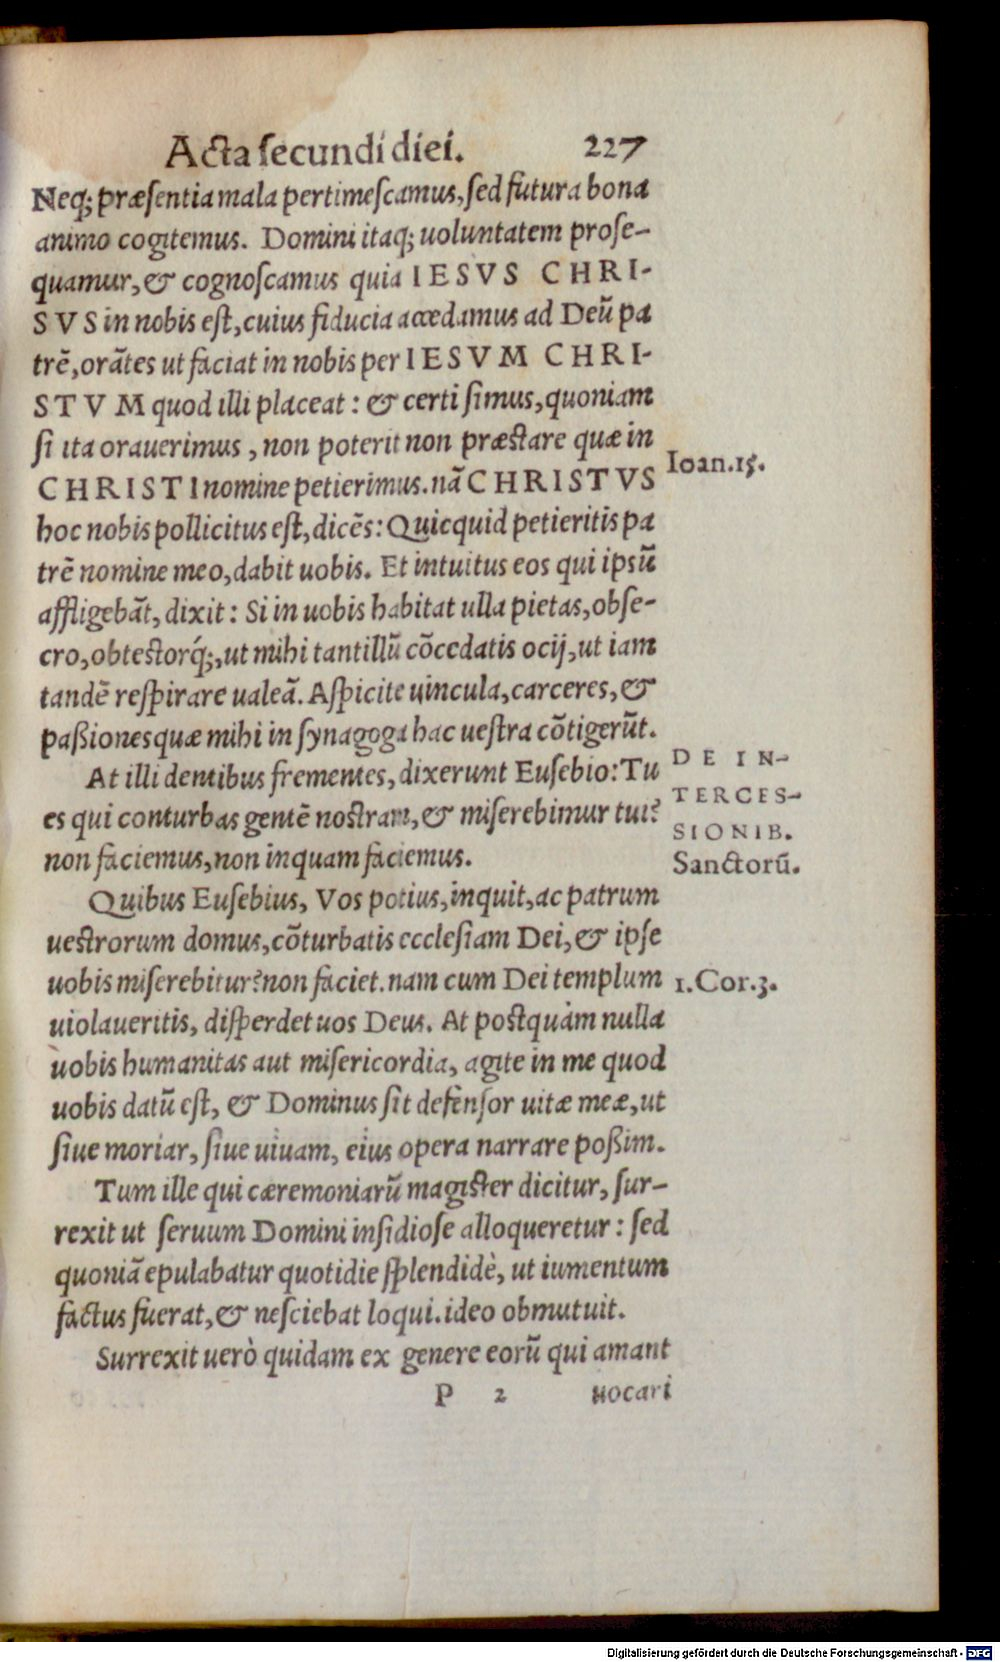 Acta ſecundi diei. 227
Neq; præſentia mala pertimeſcamus, ſed futura bona
animo cogitemus. Domini itaq; uoluntatem proſe-
quamur, & cognoſcamus quia IESVS CHRI-
SVS in nobis eſt, cuius fiducia accedamus ad Deũ pa
trẽ, orãtes ut faciat in nobis per IESVM CHRI-
STVM quod illi placeat: & certi ſimus, quoniam
ſi ita orauerimus, non poterit non præſtare quæ in
CHRISTI nomine petierimus. nã CHRISTVS
Ioan.15.
hoc nobis pollicitus eſt, dicẽs: Quicquid petieritis pa
trẽ nomine meo, dabit uobis. Et intuitus eos qui ipsũ
affligebãt, dixit: Si in uobis habitat ulla pietas, obſe-
cro, obteſtorq́;, ut mihi tantillũ cõcedatis ocij, ut iam
tandẽ reſpirare ualeã. Aſpicite uincula, carceres, &
paßiones quæ mihi in ſynagoga hac ueſtra cõtigerũt.
At illi dentibus frementes, dixerunt Euſebio: Tu
es qui conturbas gentẽ noſtram, & miſerebimur tui?
non faciemus, non inquam faciemus.
DE IN-
TERCES-
SIONIB.
Sanctorũ.
Quibus Euſebius, Vos potius, inquit, ac patrum
ueſtrorum domus, cõturbatis eccleſiam Dei, & ipſe
uobis miſerebitur? non faciet. nam cum Dei templum
1.Cor.3.
uiolaueritis, diſperdet uos Deus. At poſtquàm nulla
uobis humanitas aut miſericordia, agite in me quod
uobis datũ eſt, & Dominus ſit defenſor uitæ meæ, ut
ſiue moriar, ſiue uiuam, eius opera narrare poßim.
Tum ille qui cæremoniarũ magiſter dicitur, ſur-
rexit ut ſeruum Domini inſidioſe alloqueretur: ſed
quoniã epulabatur quotidie ſplendidè, ut iumentum
factus fuerat, & neſciebat loqui. ideo obmutuit.
Surrexit uerò quidam ex genere eorũ qui amant
P 2 uocari
Digitalisierung gefördert durch die Deutsche Forschungsgemeinschaft - DFG